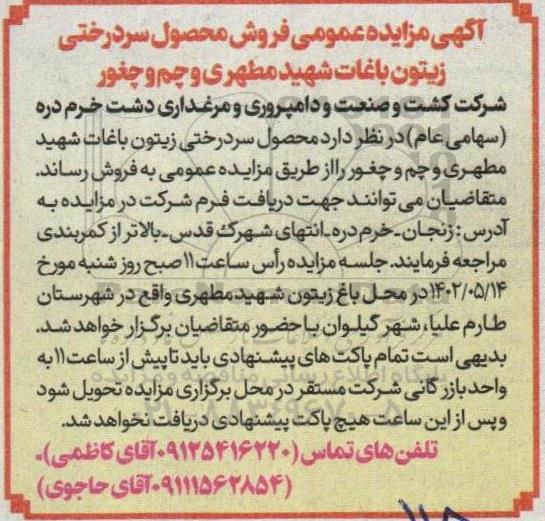 آگهی مزایده عمومی فروش محصول سردرختی
زیتون باغات شهید مطهری و چم و چغور
شرکت کشت و صنعت و دامپروری و مرغداری دشت خرم دره
(سهامی عام) در نظر دارد محصول سردرختی زیتون باغات شهید
مطهری و چم و چغور را از طریق مزایده عمومی به فروش رساند.
متقاضیان می توانند جهت دریافت فرم شرکت در مزایده به
آدرس: زنجان-خرم دره-انتهای شهرک قدس-بالاتر از کمربندی
مراجعه فرمایند. جلسه مزایده رأس ساعت ۱۱ صبح روز شنبه مورخ
۱۴۰۲/۰۵/۱۴ در محل باغ زیتون شهید مطهری واقع در شهرستان
طارم علیا، شهر گیلوان با حضور متقاضیان برگزار خواهد شد.
بدیهی است تمام پاکت های پیشنهادی باید تا پیش از ساعت ۱۱ به
واحد بازرگانی شرکت مستقر در محل برگزاری مزایده تحویل شود
و پس از این ساعت هیچ پاکت پیشنهادی دریافت نخواهد شد.
تلفن های تماس (۰۹۱۲۵۴۱۶۲۲۰ آقای کاظمی)-
(۰۹۱۱۱۵۶۲۸۵۴ آقای حاجوی)